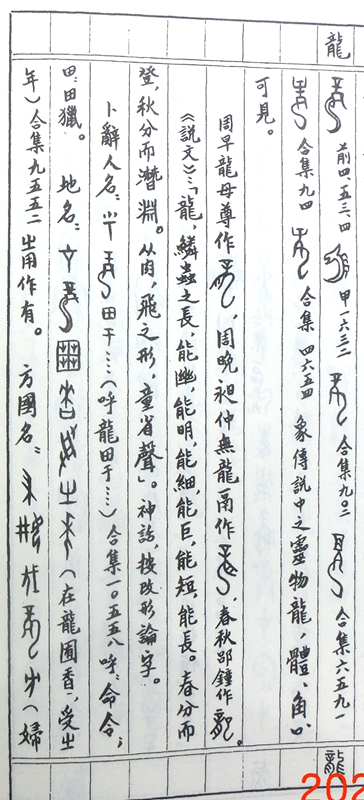 龍
前四、五三、四 甲一六三二 合集九〇二 合集六五九一
合集九四 合集 四六五四 象傳說中之靈物龍，體、角
可見。
周早龍母尊作 ，周晚昶仲無龍鬲作 ，春秋邵鐘作 。
《說文》：「龍，鱗蟲之長，能幽，能明，能細，能巨，能短，能長。春分而
登，秋分而潛淵。从肉，飛之形，童省聲」。神話，按改形論字。
卜辭人名： 田于……（呼龍田于……）合集一〇五五八 呼：命令；
田：田獵。 地名： （在龍囿香，受㞢
年）合集九五五二 㞢用作有。 方國名： （婦
龍
202